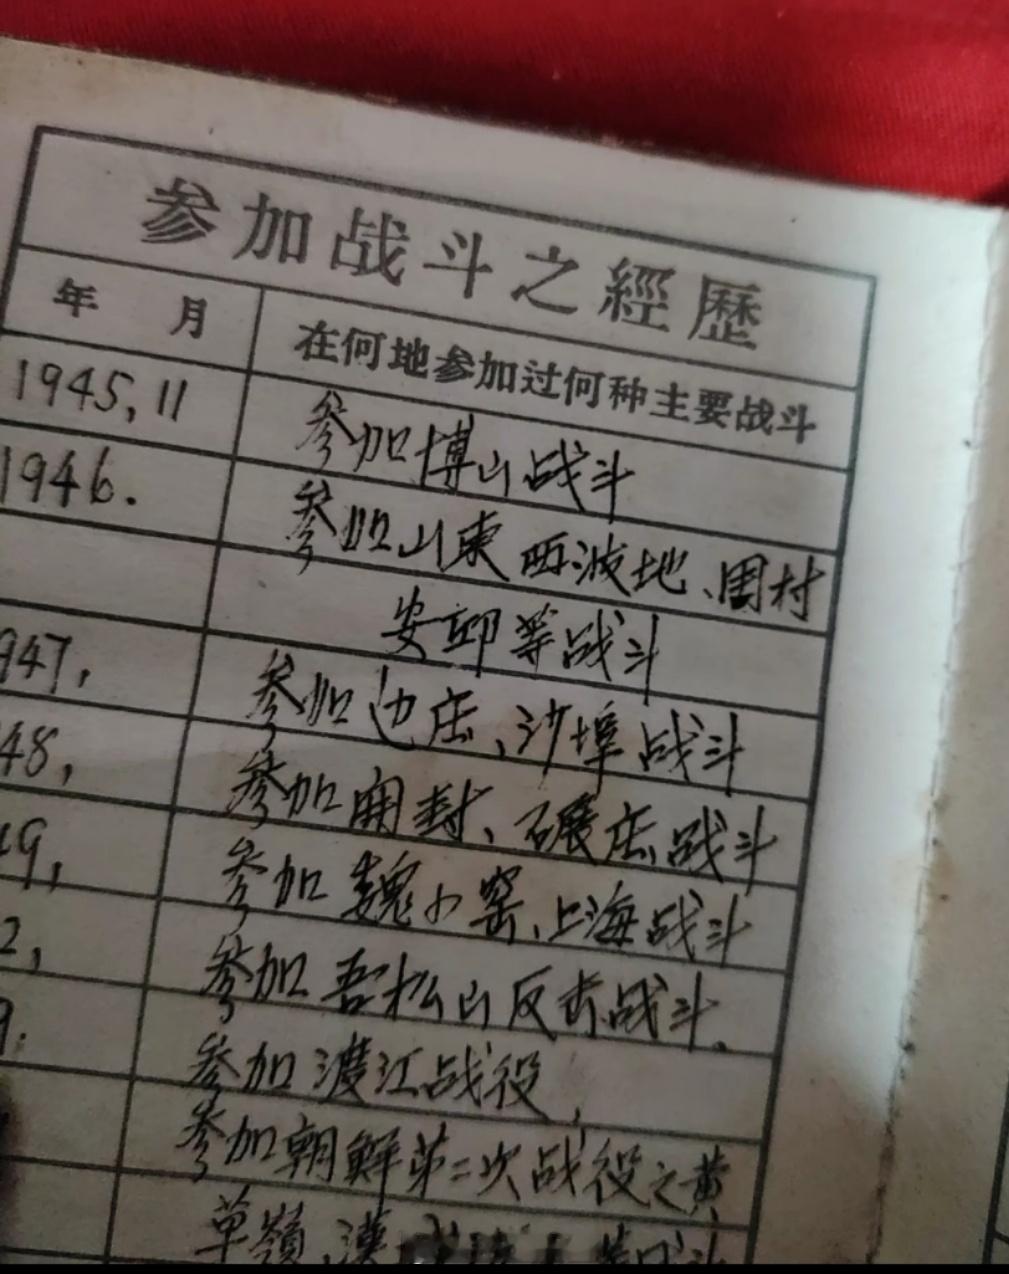 参加战斗之經歷
年 月 在何地参加过何种主要战斗
1945,11 参加博山战斗
1946. 参加山東西波地、周村
安邱等战斗
947, 参加边庄、沙埠战斗
48, 参加開封、碾庄战斗
49, 参加魏小窑、上海战斗
2, 参加吾松山反击战斗.
9. 参加渡江战役,
参加朝鲜第二次战役之黄
草嶺、漢